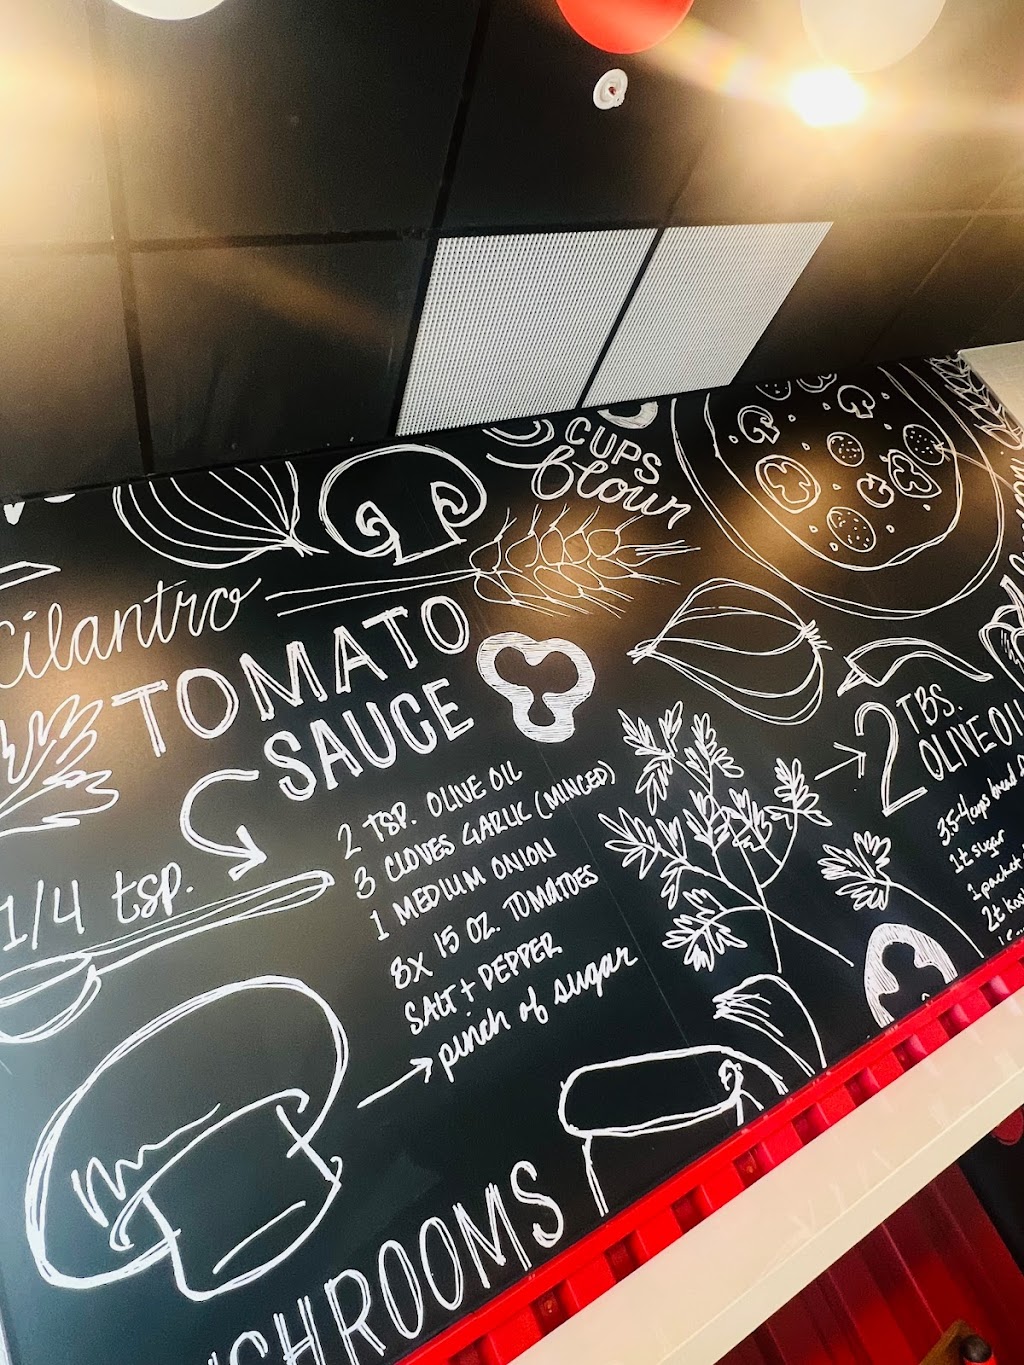 CUPS
flour
cilantro
TOMATO
SAUCE
1/4 tsp.
2 TSP. OLIVE OIL
3 CLOVES GARLIC (MINCED)
1 MEDIUM ONION
8X 15 OZ. TOMATOES
SALT + PEPPER
pinch of sugar
2 TBS.
OLIVE OIL
3.5-4 cups bread
1 t sugar
1 packet
2 t